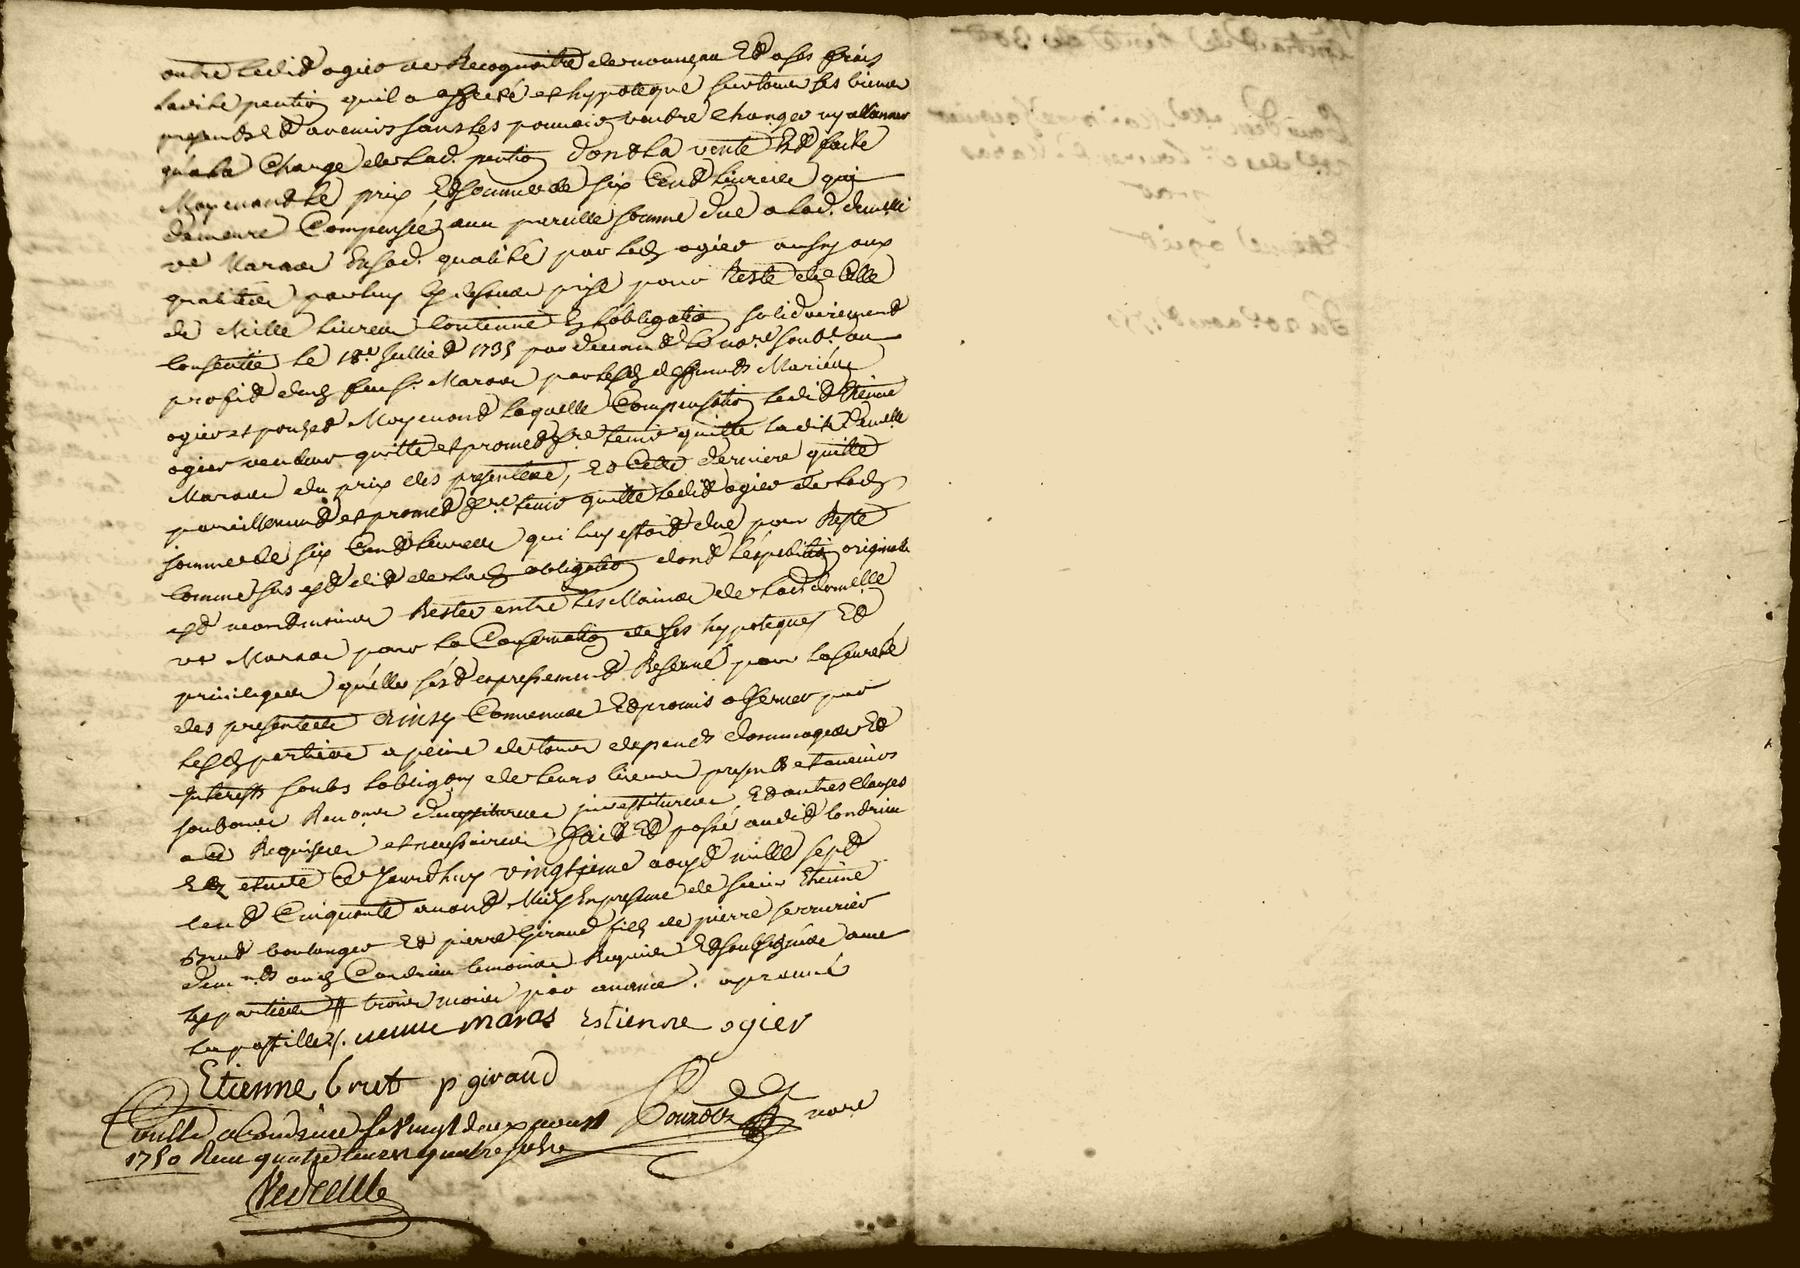 outre ledit ogier de Recognoitre de nouveau Et a ses frais
ladite pention quil a affecté et hypotequé sur tous ses biens
presents Et avenirs sans les pouvoir vendre Changer ny alliener
qu'a la Charge de lad. pention dont la vente Est faite
Moyenant le prix Et somme de six Cent livres qui
demeure Compensée aux pareille somme due a lad. demelle
ve Maras En sad. qualité par led ogier aussy aux
qualités par luy cy dessus prise pour Reste de Celle
de Mille livres Contenue En lobligation solidairement
Consentie le 18e Juillet 1735 par devant le nore soubs. au
profit dud feu sr. Maras par lesd deffunts Mariés
ogier et pouzet Moyenant laquelle Compensation ledit Etienne
ogier vendeur quitte et promet fre tenir quitte ladite Demelle
Maras du prix des presentes, Et Cette derniere quitte
pareillement et promet fre tenir quitte ledit ogier de lad
somme de six Cent livres qui luy estoit due pour Reste
Comme sus est dit de lad obligation dont lexpedition originale
est neantmoins Restée entre les Mains de lad. demelle
ve Maras pour la Conservation de ses hypoteques Et
privileges qu'elle sést expressement Reservé pour la seureté
des presentes ainsy Convenus Et promis observer par
lesd parties a peine de tous depends dommages Et
Interests soubs lobligaon de leurs biens presents et avenirs
soubmis Renonce investitures Et autres Clauses
a ce Requises et necessaires fait Et passé audit Condrieu
Et etude Ce jourdhuy vingtieme aoust mille sept
Cent Cinquante avant Midy En presence de sieur Etienne
Bret boulanger Et pierre Giraud fils de pierre serrurier
demts aud Condrieu temoins Requis Et soussignés avec
les parties # trois mois par avance. aprouvé
la postille /. veuve maras Estienne ogier
Etienne bret p giraud
Conllé a Condrieu le vingt deux aoust nore
1750 Reçu quatre livres quatre sols